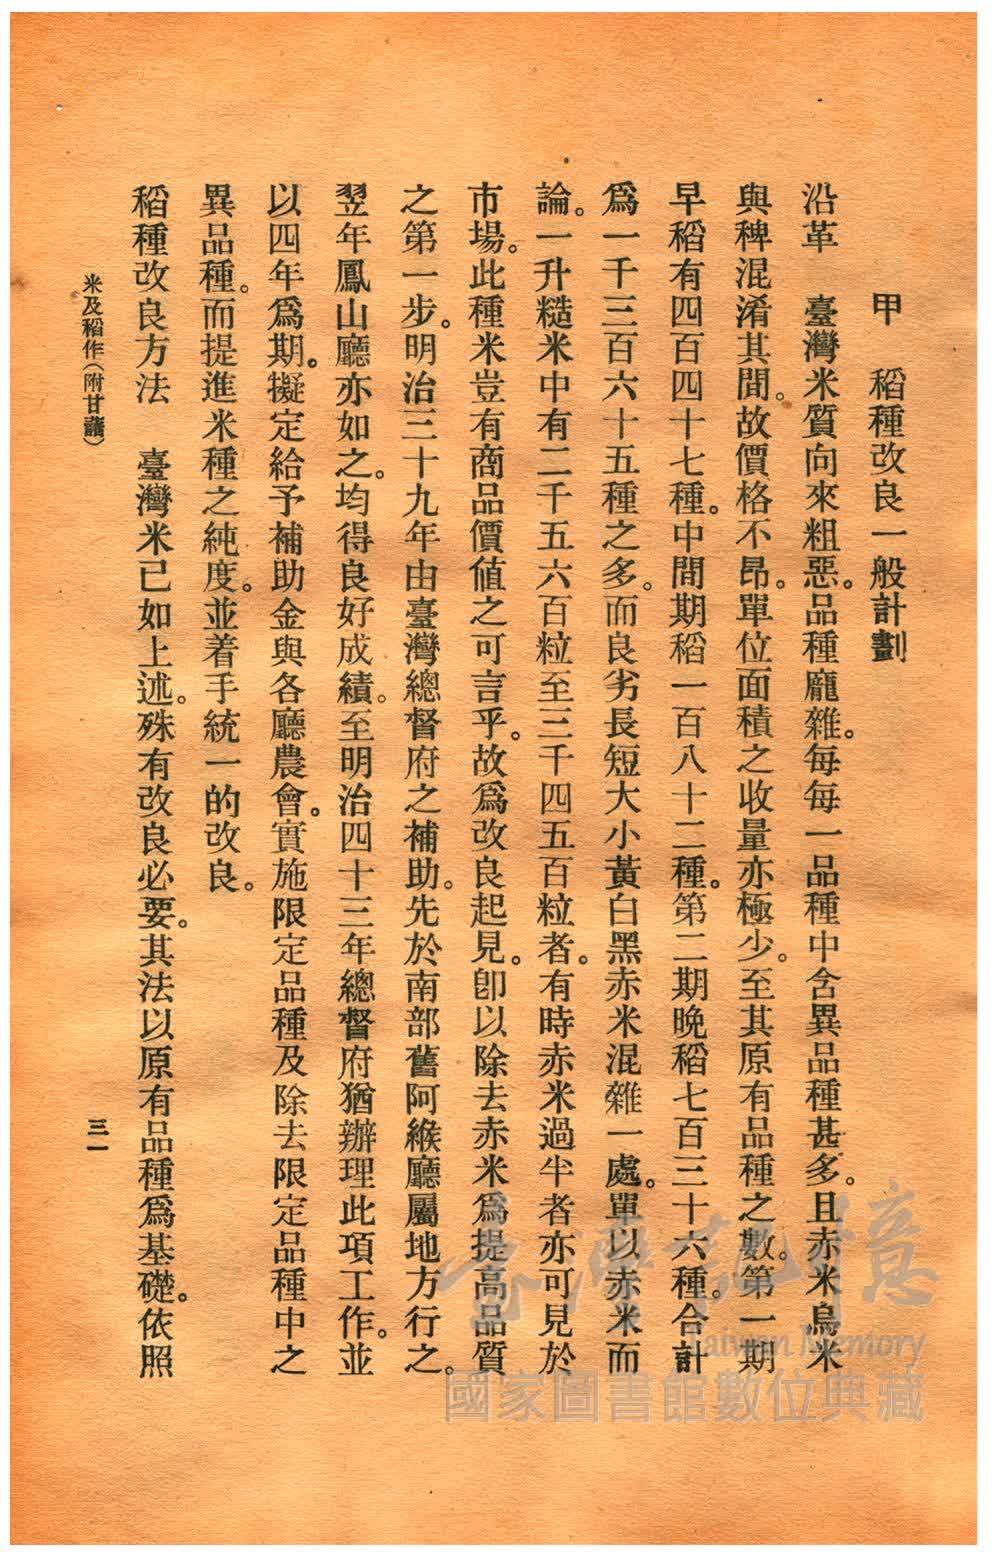 甲　稻種改良一般計劃
沿革　臺灣米質向來粗惡。品種龐雜。每每一品種中含異品種甚多。且赤米烏米
與稗混淆其間。故價格不昂。單位面積之收量亦極少。至其原有品種之數。第一期
早稻有四百四十七種。中間期稻一百八十二種。第二期晚稻七百三十六種。合計
爲一千三百六十五種之多。而良劣長短大小黃白黑赤米混雜一處。單以赤米而
論。一升糙米中有二千五六百粒至三千四五百粒者。有時赤米過半者亦可見於
市場。此種米豈有商品價值之可言乎。故爲改良起見。卽以除去赤米爲提高品質
之第一步。明治三十九年由臺灣總督府之補助。先於南部舊阿緱廳屬地方行之。
翌年鳳山廳亦如之。均得良好成績。至明治四十三年總督府猶辦理此項工作。並
以四年爲期。擬定給予補助金與各廳農會。實施限定品種及除去限定品種中之
異品種。而提進米種之純度。並着手統一的改良。
稻種改良方法　臺灣米已如上述。殊有改良必要。其法以原有品種爲基礎。依照
米及稻作（附甘藷）
三一
臺灣記憶
Taiwan Memory
國家圖書館數位典藏